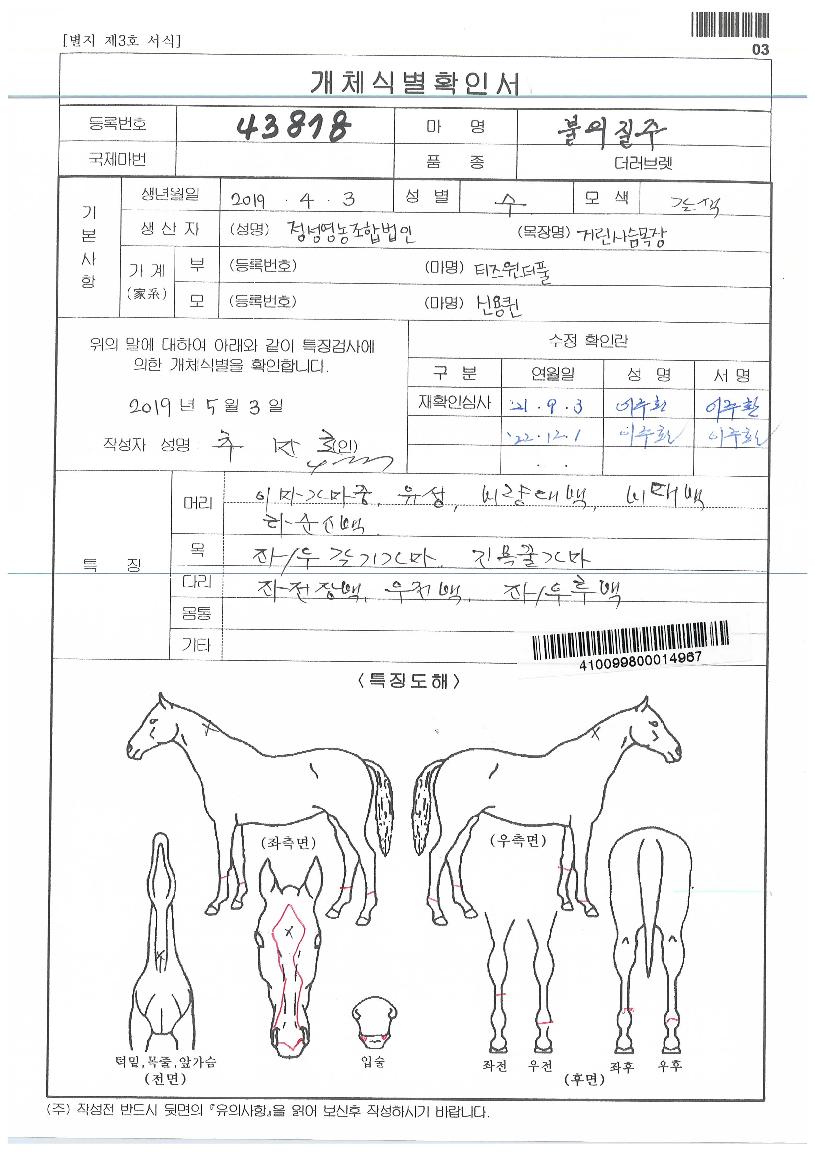 [별지 제3호 서식]
03
개체식별확인서
등록번호 43818 마 명 불의질주
국제마번 품 종 더러브렛
기본사항
생년월일 2019 . 4 . 3 성 별 수 모 색 갈색
생 산 자 (성명) 정성영농조합법인 (목장명) 거린사슴목장
가 계 (家系) 부 (등록번호) (마명) 티즈원더풀
모 (등록번호) (마명) 신용퀸
위의 말에 대하여 아래와 같이 특징검사에
의한 개체식별을 확인합니다.
2019 년 5 월 3 일
작성자 성명 (인)
수정 확인란
구 분 연월일 성 명 서 명
재확인심사 '21 . 9 . 3 이주환 이주환
'22 . 12 . 1 이주환 이주환
. .
특 징
머리 이마가마중, 유성, 비량대백, 비대백
하순소백
목 좌/우 갈기가마, 진목줄가마
다리 좌전장백, 우전백, 좌/우후백
몸통
기타
410099800014967
<특징도해>
(좌측면)
(우측면)
턱밑,목줄,앞가슴
(전면)
입술
좌전 우전 좌후 우후
(후면)
(주) 작성전 반드시 뒷면의 『유의사항』을 읽어 보신후 작성하시기 바랍니다.